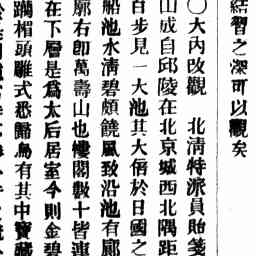 結習之深可以觀矣
○大內改觀　北淸特派員貽箋
山成自邱陵在北京城西北隅距
百步見一大池其大倍於日國之
船池水淸碧頗饒風致沿池有廊
廓右卽萬壽山也樓閣數十皆連
在下層是爲太后居室今則金碧
躅楣頭雕式悉歸烏有其中寶藏